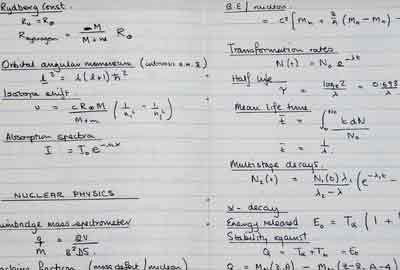 Rydberg Const.
R∞ = R∞
R hydrogen = M / M+m R∞
Orbital angular momentum
l² = l(l+1)ħ²
Isotope shift
υ = cR∞M / M+m (1/n₁² - 1/n₂²)
Absorption spectra
I = I₀e
NUCLEAR PHYSICS
Bainbridge mass spectrometer
q/m = 2V / B²DS
fraction (mass defect / nucleon)
B.E / nucleon
= c² [Mn + Z/A (MH - Mn) -
Transformation rates
N(t) = N₀ e^-λt
Half life
τ = loge2 / λ = 0.693 / λ
Mean life time
t̄ = ∫ t dN / N₀
t̄ = 1/λ
Multistage decays.
N₂(t) = N₁(0)λ₁ / λ₂ - λ₁ (e^-λ₁t -
α - decay
Energy released E₀ = Tα (1 +
Stability against
Q = Tα + Tb = E₀
Q = MN(Z,A) - MN(Z-2, A-4)